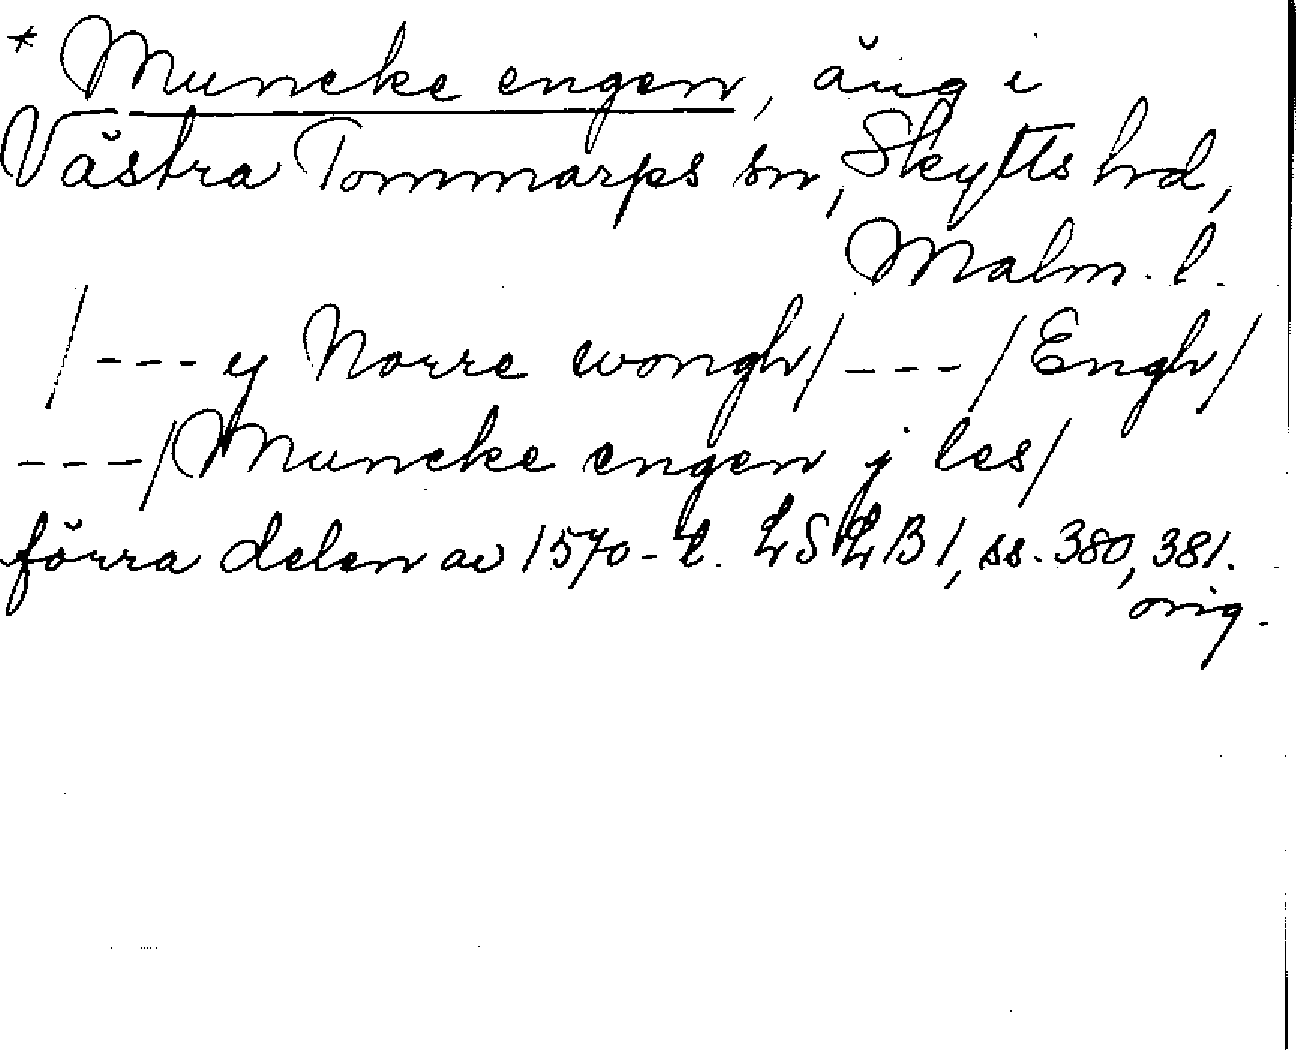 * Muncke engen, äng i
Västra Tommarps sn, Skytts hd,
Malm. l.
/--- y Norre wongh/---/Engh/
---/Muncke engen j les/
förra delen av 1570-t. LSLB1, ss. 380, 381.
orig.